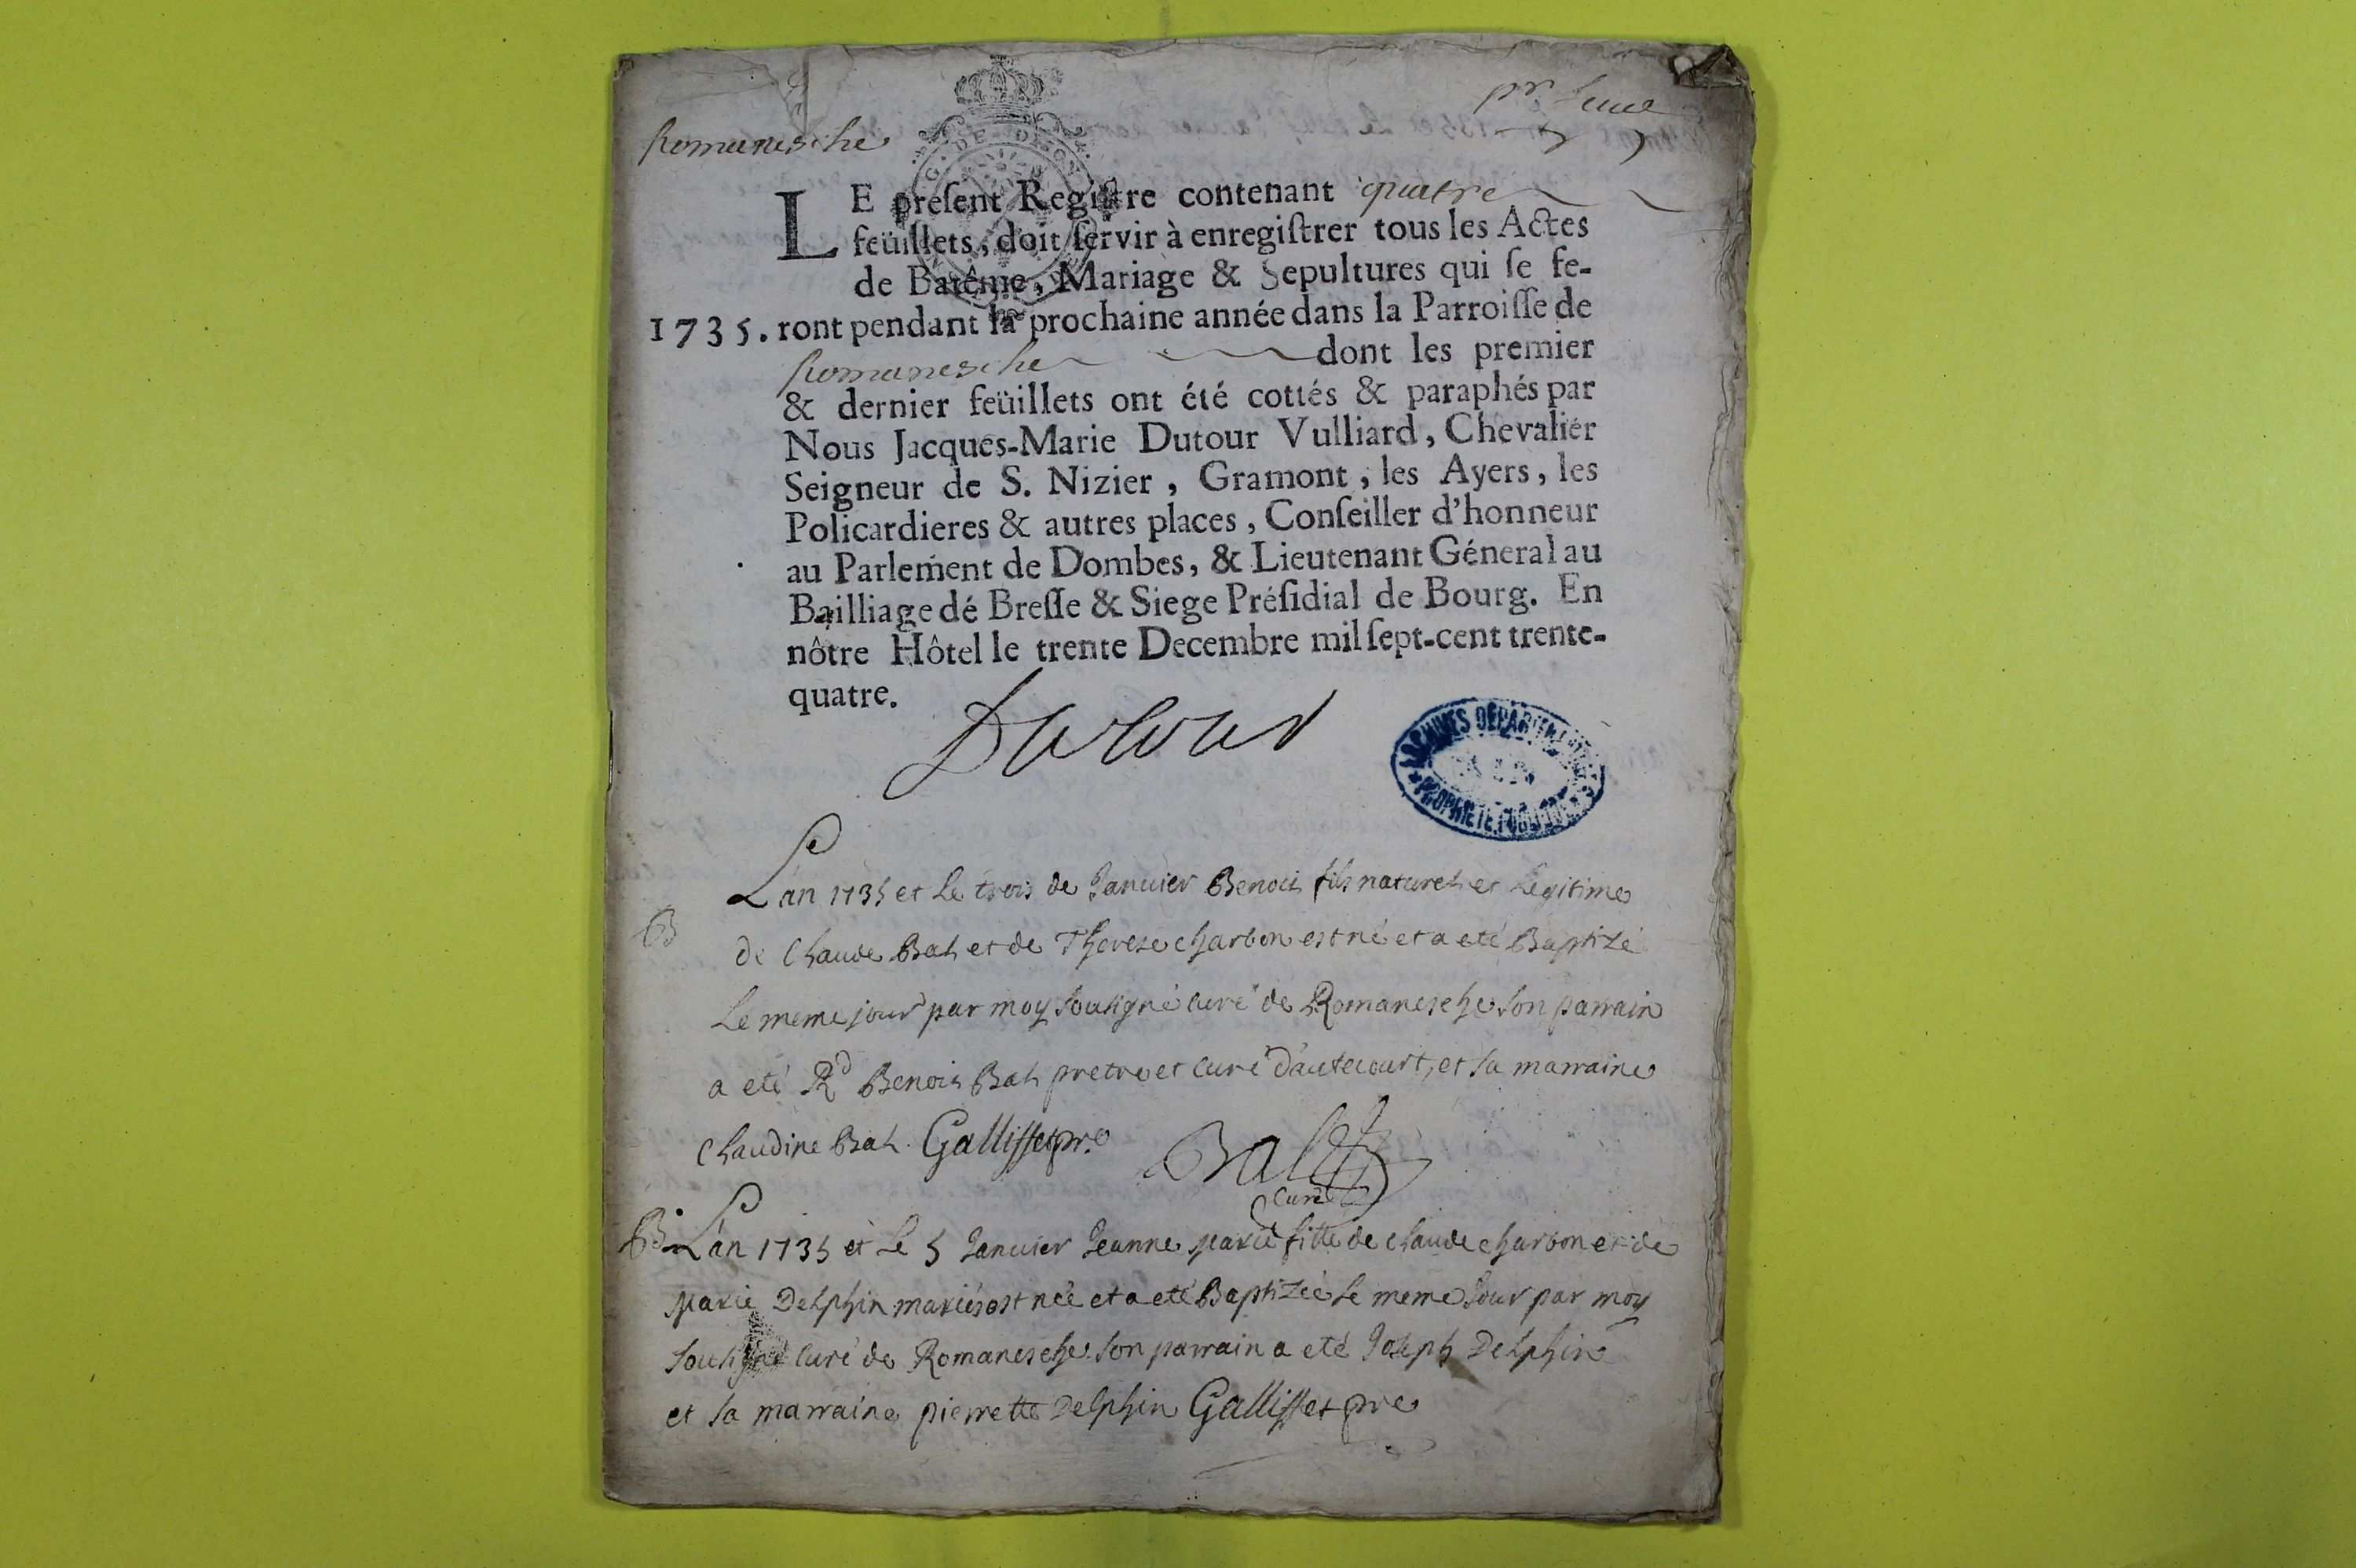 Romanesche
G. DE DIJON
LE preſent Regiſtre contenant quatre
feüillets, doit ſervir à enregiſtrer tous les Actes
de Batême, Mariage & Sepultures qui ſe fe-
1735. ront pendant la prochaine année dans la Parroiſſe de
Romanesche dont les premier
& dernier feüillets ont été cottés & paraphés par
Nous Jacques-Marie Dutour Vulliard, Chevalier
Seigneur de S. Nizier, Gramont, les Ayers, les
Policardieres & autres places, Conſeiller d'honneur
au Parlement de Dombes, & Lieutenant Géneral au
Bailliage dé Breſſe & Siege Préſidial de Bourg. En
nôtre Hôtel le trente Decembre mil ſept-cent trente-
quatre.
Dutour
ARCHIVES DEPARTEMENTALES
PROPRIETE PUBLIQUE
L'an 1735 et le trois de Janvier Benois fils naturel et legitime
B de Claude Bal et de Therese charbon est né et a eté Baptizé
Le meme jour par moy Sousigné curé de Romanesche son parrain
a eté Rd Benois Bal pretre et curé d'autecourt, et sa marraine
Claudine Bal. Gallisset pre
Bal
Curé
B L'an 1735 et le 5 Janvier Jeanne Marie fille de claude charbon et de
Marie Delphin mariés est née et a eté Baptizée le meme Jour par moy
Sousigné curé de Romanesche son parrain a eté Joseph Delphin
et sa marraine pierrette Delphin Gallisset pre